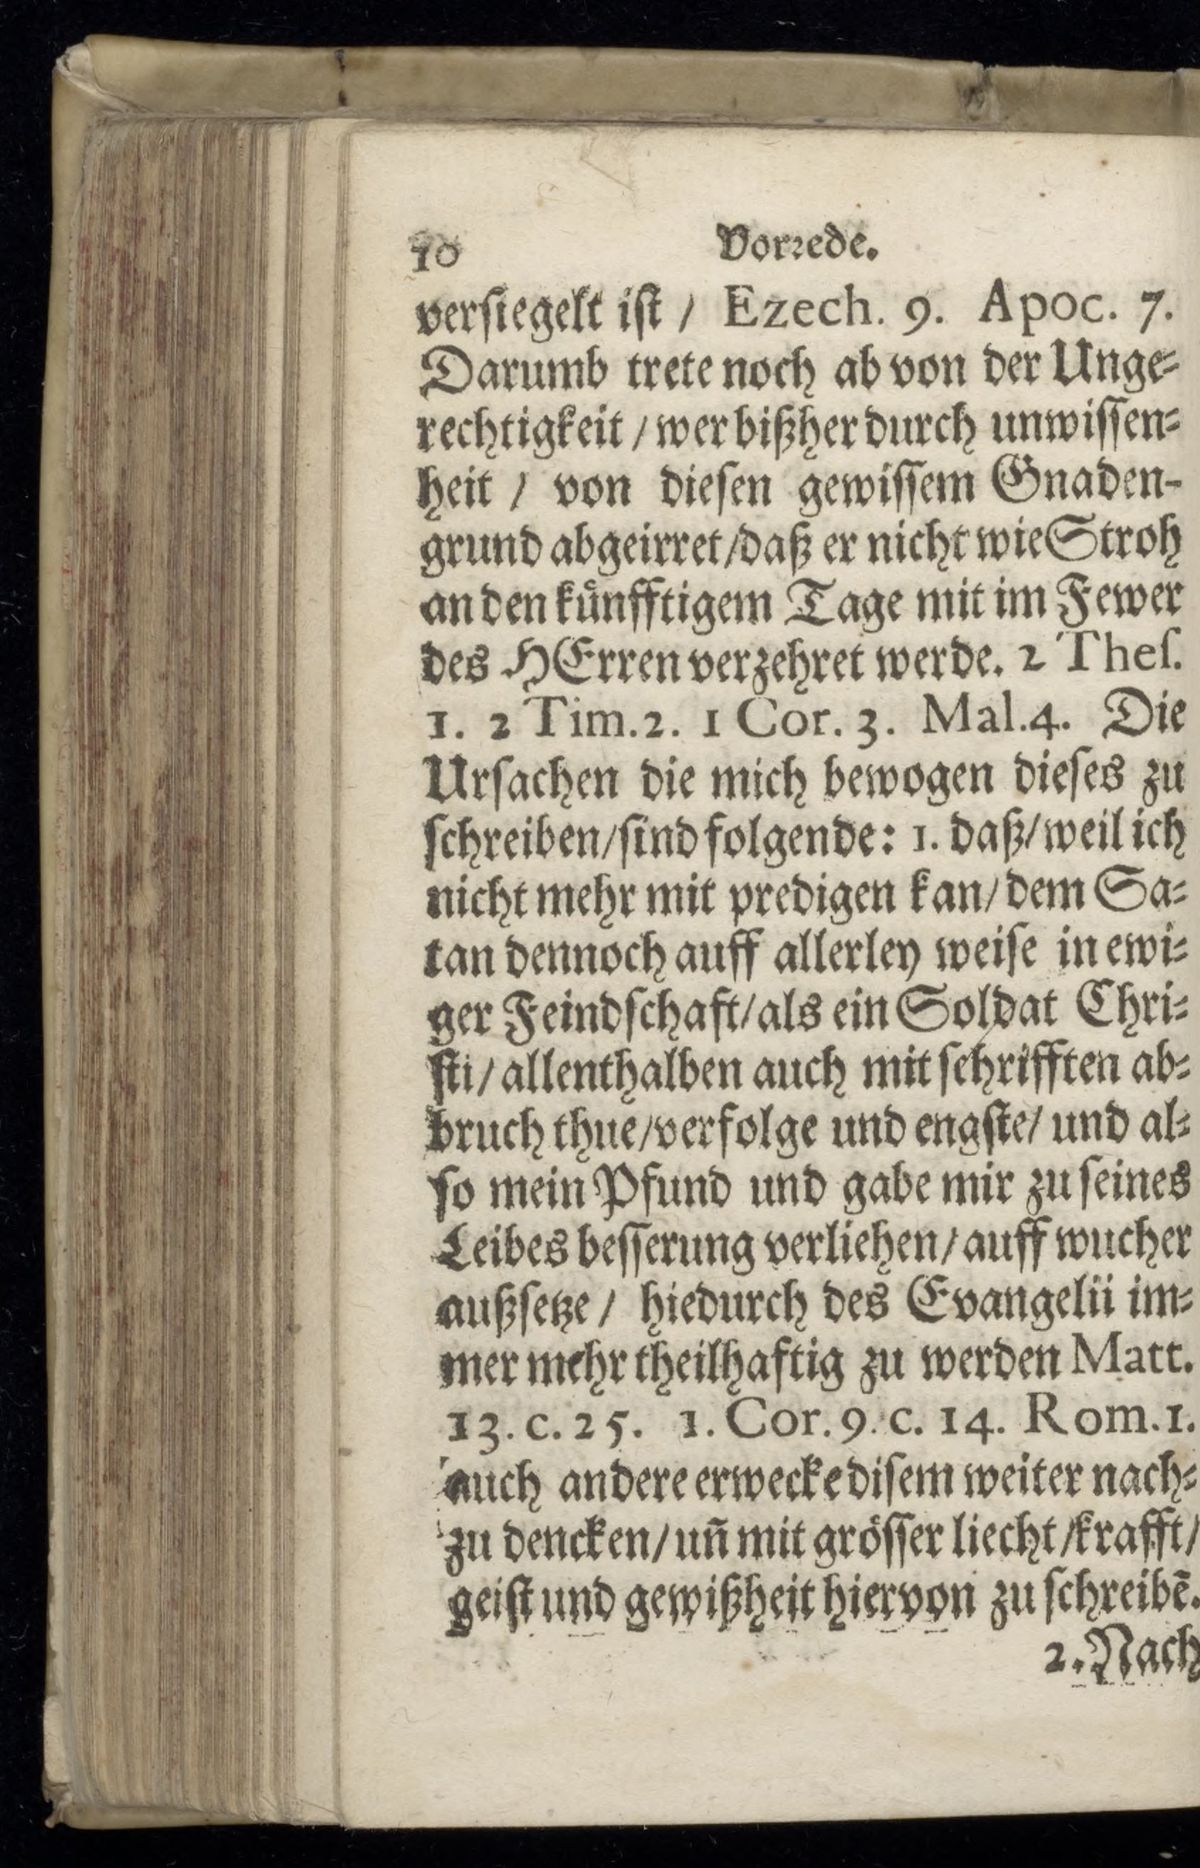 10 Vorꝛede.
verſiegelt iſt / Ezech. 9. Apoc. 7.
Darumb trete noch ab von der Unge⸗
rechtigkeit / wer bißher durch unwiſſen⸗
heit / von dieſen gewiſſem Gnaden-
grund abgeirret/daß er nicht wie Stroh
an den kuͤnfftigem Tage mit im Fewer
des HErren verzehret werde. 2 Theſ.
1. 2 Tim.2. 1 Cor. 3. Mal.4. Die
Urſachen die mich bewogen dieſes zu
ſchreiben/ſind folgende: 1. daß/weil ich
nicht mehr mit predigen kan/dem Sa⸗
tan dennoch auff allerley weiſe in ewi⸗
ger Feindſchaft/als ein Soldat Chri⸗
ſti/allenthalben auch mit ſehrifften ab⸗
bruch thue/verfolge und engſte/ und al⸗
ſo mein Pfund und gabe mir zu ſeines
Leibes beſſerung verliehen/auff wucher
außſetze / hiedurch des Evangelii im⸗
mer mehr theilhaftig zu werden Matt.
13. c. 25. 1. Cor. 9. c. 14. Rom. 1.
auch andere erwecke diſem weiter nach⸗
zu dencken/uñ mit groͤſſer liecht/krafft/
geiſt und gewißheit hiervon zu ſchreibē.
2. Nach